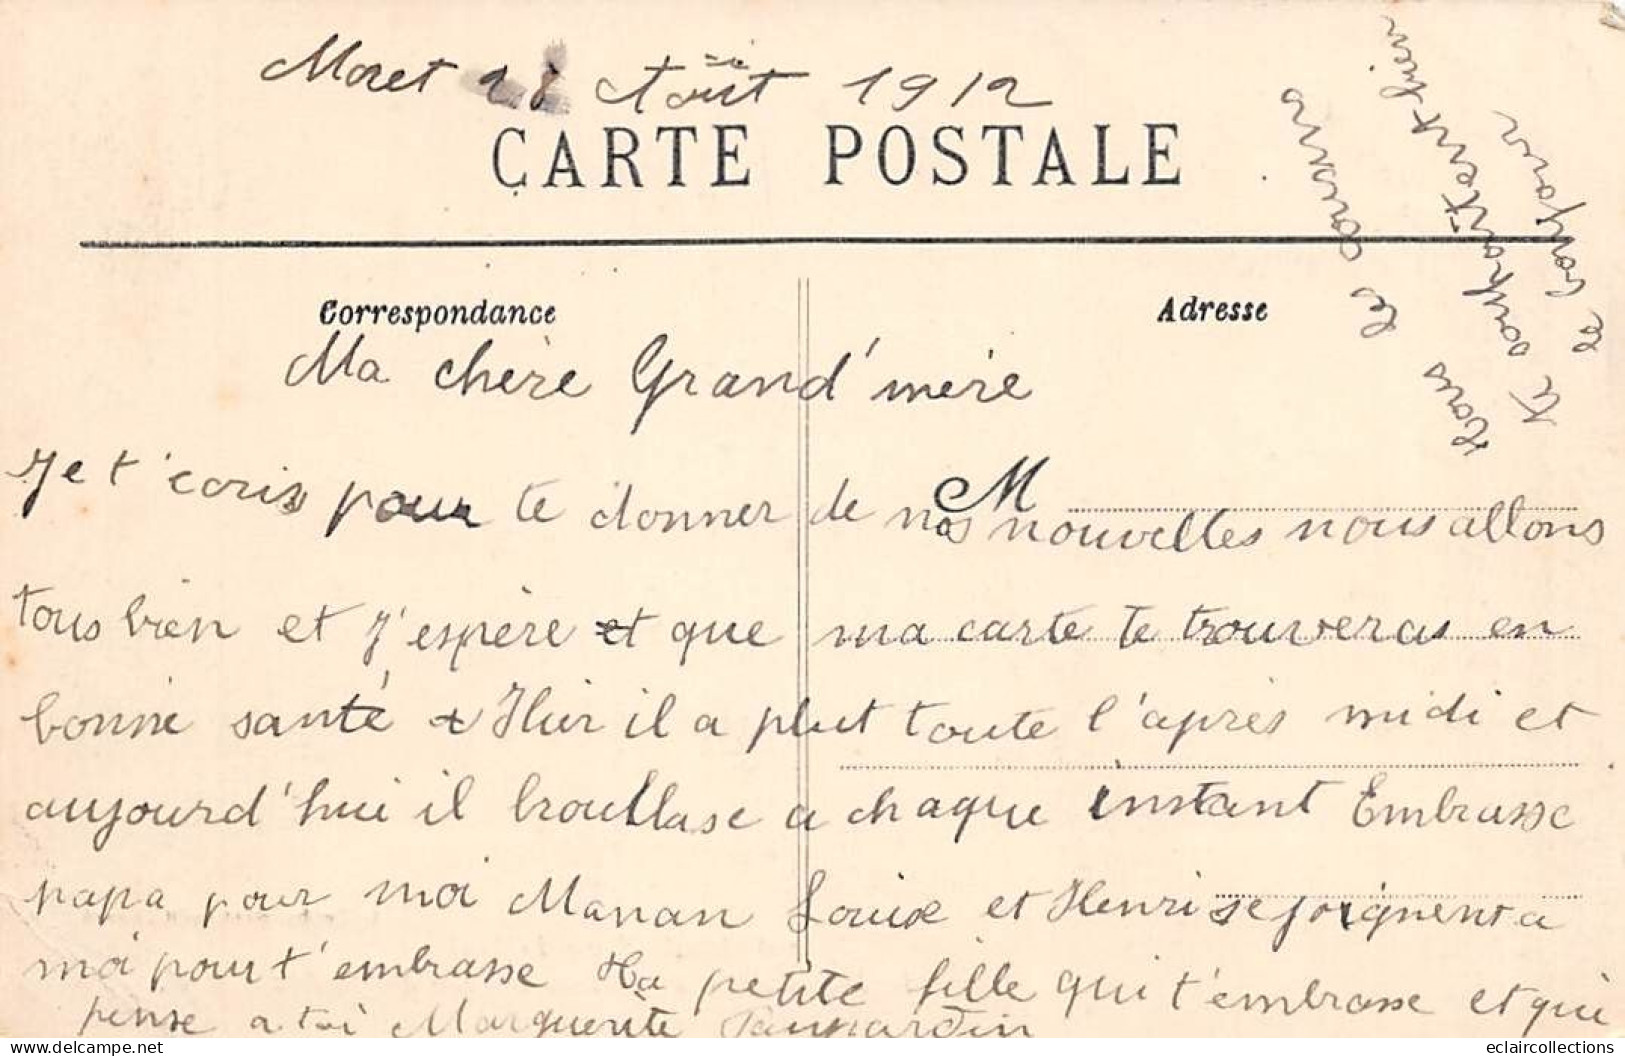 Moret 28 Août 1912
CARTE POSTALE
Correspondance
Adresse
Ma chère Grand'mère
M
Je t'écris pour te donner de nos nouvelles nous allons
tous bien et j'espère et que ma carte te trouveras en
bonne santé Hier il a plut toute l'après midi et
aujourd'hui il brouillase a chaque instant Embrasse
papa pour moi Maman Louise et Henri se joignent a
moi pour t'embrasse Ta petite fille qui t'embrasse et qui
pense a toi Marguerite
Tous les cousins
se portent bien
le bonjour
eclaircollections
delcampe.net